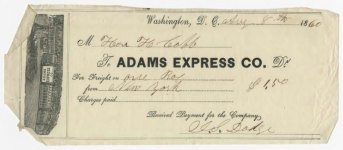 Washington, D. C. Aug 8th 1860
M Hon H. Cobb
To ADAMS EXPRESS CO. Dr.
For Freight on one Box
from New York $1,50
Charges paid.
Received Payment for the Company,
Dodge